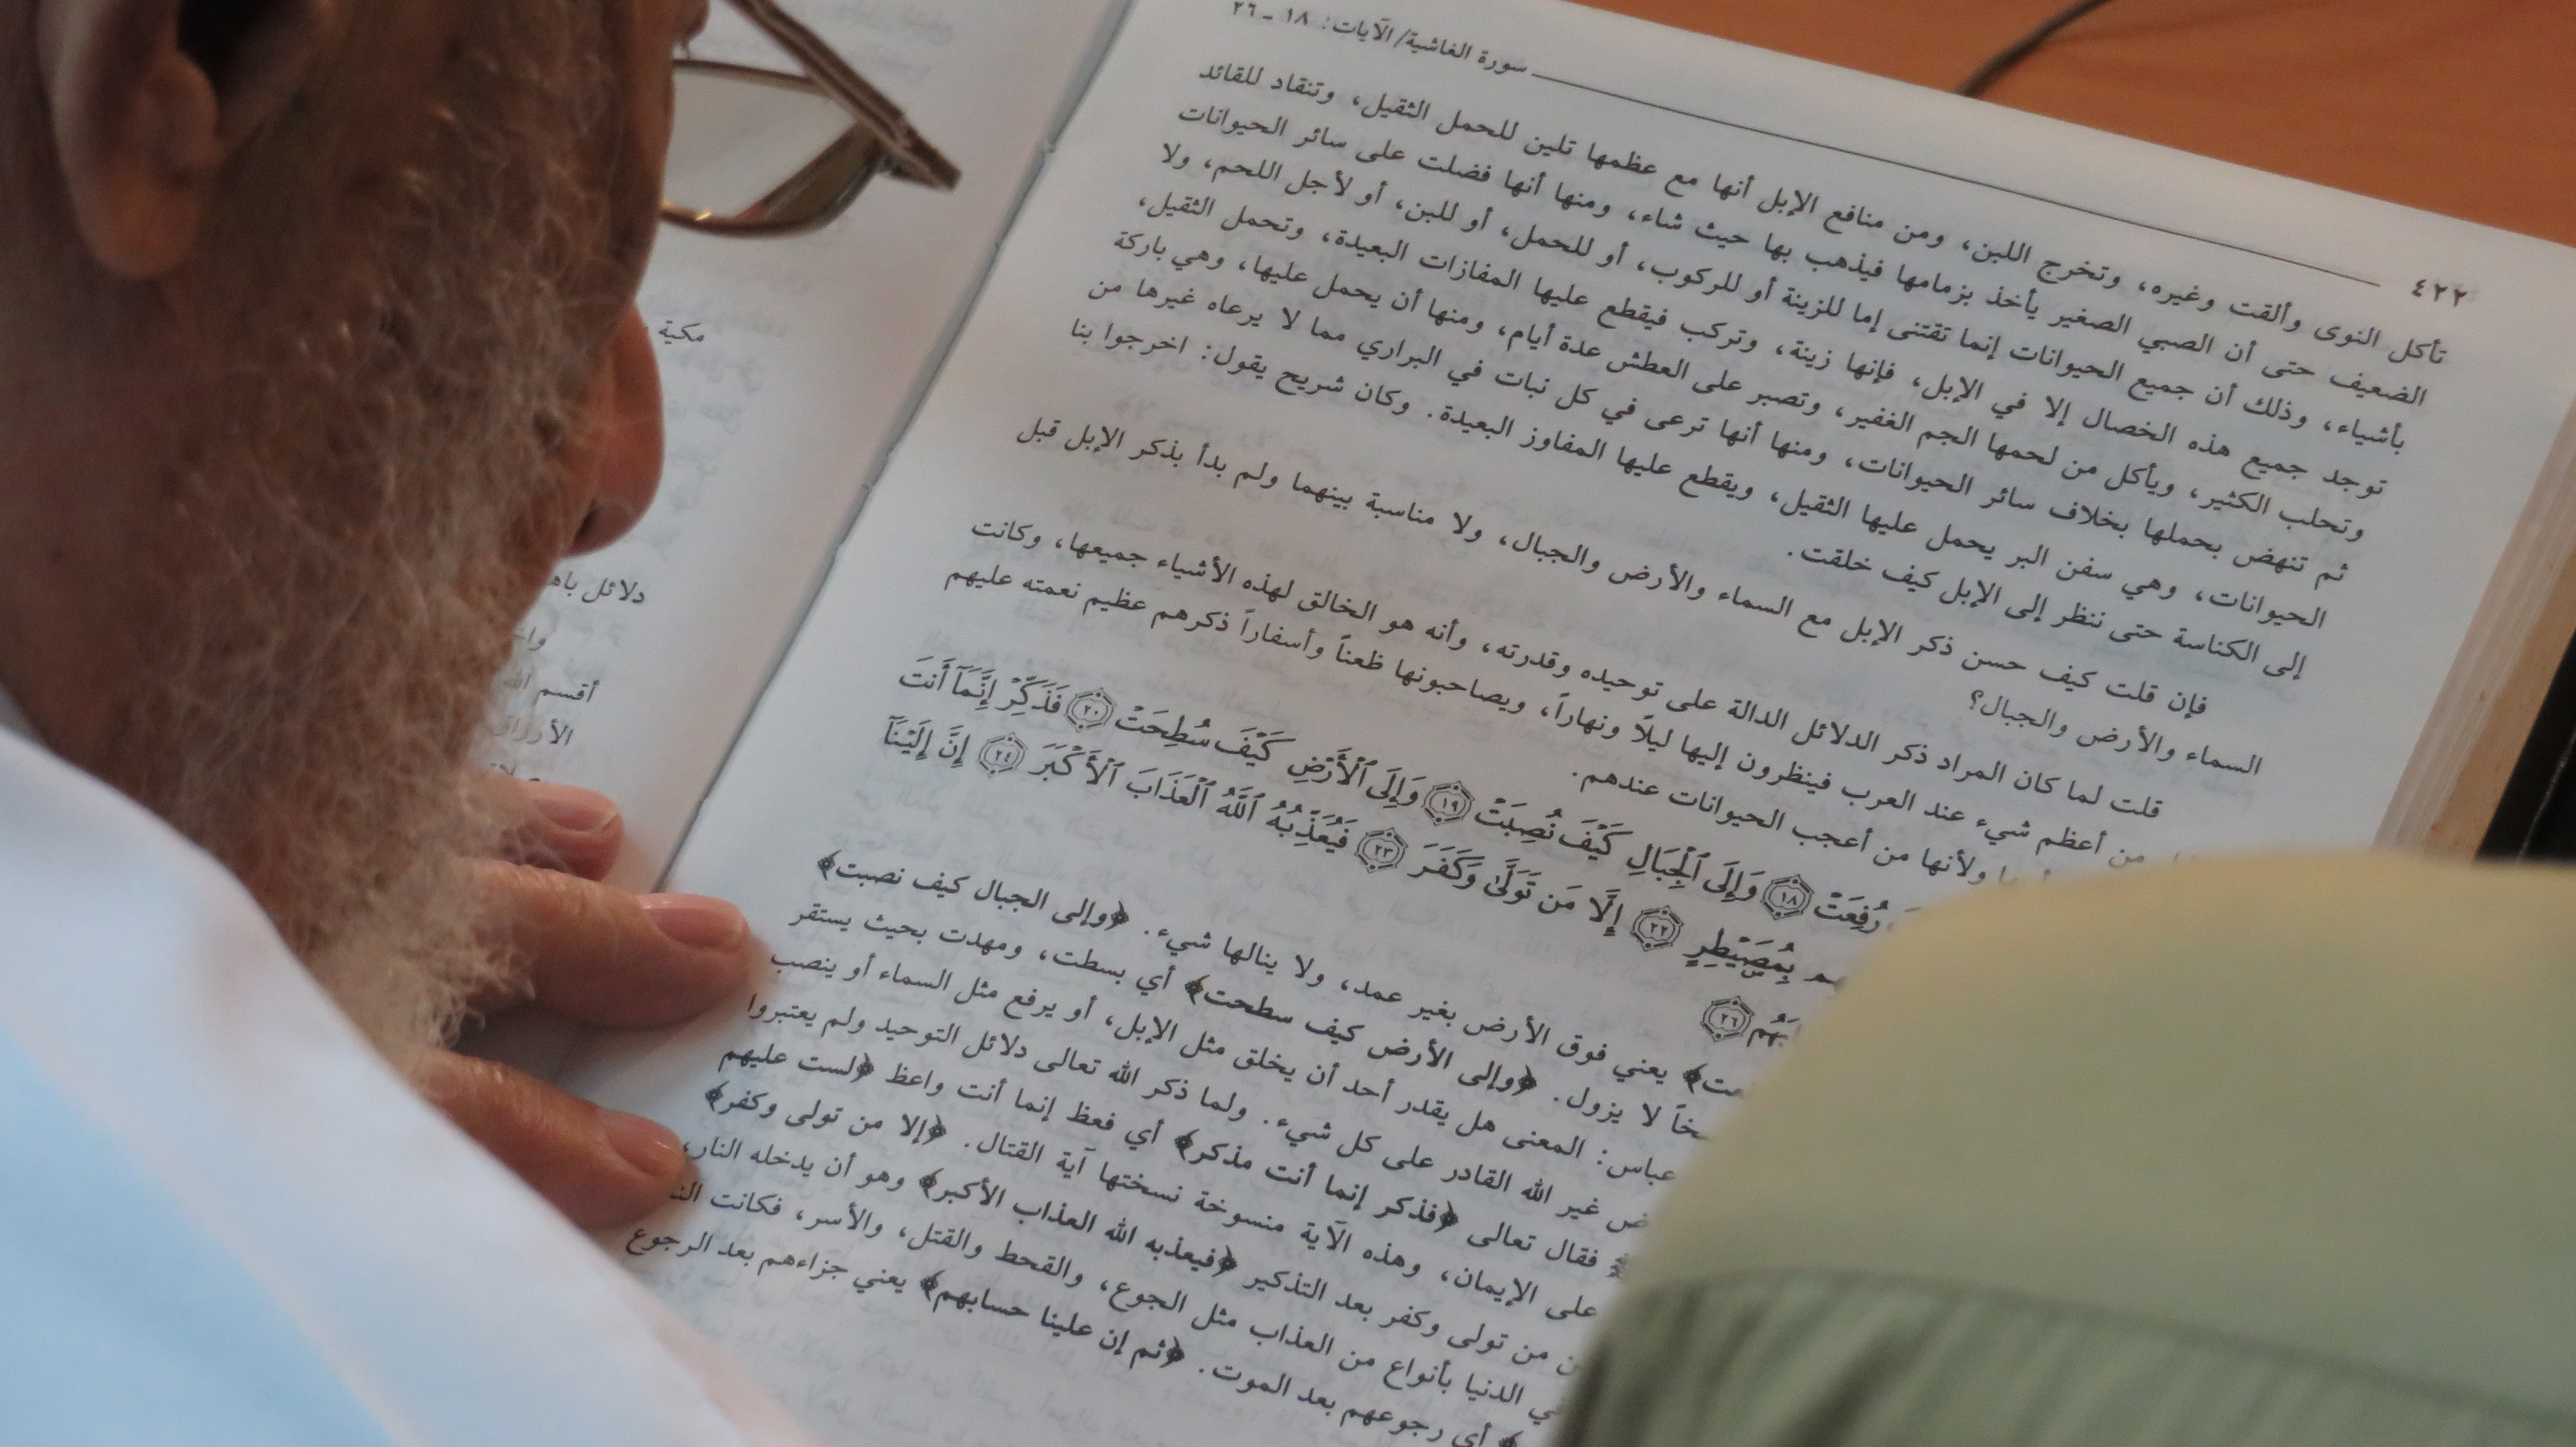 ٤٢٢ سورة الغاشية/ الآيات: ١٨ - ٢٦
تأكل النوى وألقت وغيره، وتخرج اللبن، ومن منافع الإبل أنها مع عظمها تلين للحمل الثقيل، وتنقاد للقائد
الضعيف حتى أن الصبي الصغير يأخذ بزمامها فيذهب بها حيث شاء، ومنها أنها فضلت على سائر الحيوانات
بأشياء، وذلك أن جميع الحيوانات إنما تقتنى إما للزينة أو للركوب، أو للحمل، أو للبن، أو لأجل اللحم، ولا
توجد جميع هذه الخصال إلا في الإبل، فإنها زينة، وتركب فيقطع عليها المفازات البعيدة، وتحمل الثقيل،
وتحلب الكثير، ويأكل من لحمها الجم الغفير، وتصبر على العطش عدة أيام، ومنها أن يحمل عليها، وهي باركة
ثم تنهض بحملها بخلاف سائر الحيوانات، ومنها أنها ترعى في كل نبات في البراري مما لا يرعاه غيرها من
الحيوانات، وهي سفن البر يحمل عليها الثقيل، ويقطع عليها المفاوز البعيدة. وكان شريح يقول: اخرجوا بنا
إلى الكناسة حتى ننظر إلى الإبل كيف خلقت.
فإن قلت كيف حسن ذكر الإبل مع السماء والأرض والجبال، ولا مناسبة بينهما ولم بدأ بذكر الإبل قبل
السماء والأرض والجبال؟
قلت لما كان المراد ذكر الدلائل الدالة على توحيده وقدرته، وأنه هو الخالق لهذه الأشياء جميعها، وكانت
من أعظم شيء عند العرب فينظرون إليها ليلاً ونهاراً، ويصاحبونها ظعناً وأسفاراً ذكرهم عظيم نعمته عليهم
ولأنها من أعجب الحيوانات عندهم.
رُفِعَتْ ١٨ وَإِلَى ٱلْجِبَالِ كَيْفَ نُصِبَتْ ١٩ وَإِلَى ٱلْأَرْضِ كَيْفَ سُطِحَتْ ٢٠ فَذَكِّرْ إِنَّمَآ أَنتَ
بِمُصَيْطِرٍ ٢٢ إِلَّا مَن تَوَلَّىٰ وَكَفَرَ ٢٣ فَيُعَذِّبُهُ ٱللَّهُ ٱلْعَذَابَ ٱلْأَكْبَرَ ٢٤ إِنَّ إِلَيْنَآ
٢٦
يعني فوق الأرض بغير عمد، ولا ينالها شيء. ﴿وإلى الجبال كيف نصبت﴾
لا يزول. ﴿وإلى الأرض كيف سطحت﴾ أي بسطت، ومهدت بحيث يستقر
عباس: المعنى هل يقدر أحد أن يخلق مثل الإبل، أو يرفع مثل السماء أو ينصب
غير الله القادر على كل شيء. ولما ذكر الله تعالى دلائل التوحيد ولم يعتبروا
فقال تعالى ﴿فذكر إنما أنت مذكر﴾ أي فعظ إنما أنت واعظ ﴿لست عليهم
على الإيمان، وهذه الآية منسوخة نسختها آية القتال. ﴿إلا من تولى وكفر﴾
من تولى وكفر بعد التذكير ﴿فيعذبه الله العذاب الأكبر﴾ وهو أن يدخله النار،
الدنيا بأنواع من العذاب مثل الجوع، والقحط والقتل، والأسر، فكانت
أي رجوعهم بعد الموت. ﴿ثم إن علينا حسابهم﴾ يعني جزاءهم بعد الرجوع
مكية
دلائل
أقسم الله